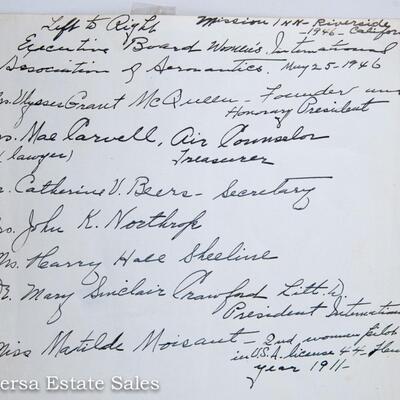 Left to Right
Mission Inn-Riverside
-1946- Californ
Executive Board Women's International
Association of Aeronautics. May 25-1946
rs. Ulysses Grant McQueen - Founder and
Honorary President
rs. Mae Carvell, Air Counselor
(lawyer) Treasurer
r. Catherine V. Beers - Secretary
rs. John K. Northrop
Mrs. Harry Hall Sheeline
Dr. Mary Sinclair Crawford Litt. D
President Internation
Miss Matilde Moisant - 2nd women pilot
in U.S.A. license 44-
year 1911-
ersa Estate Sales